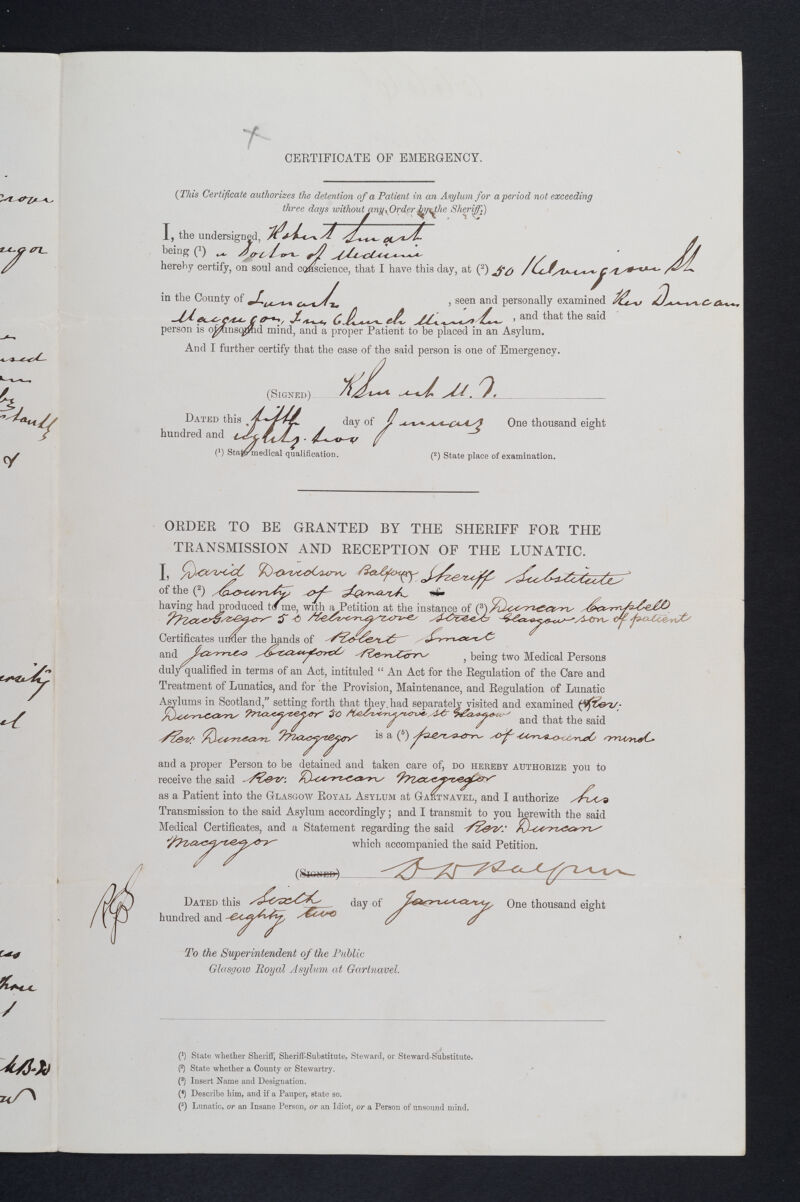 CERTIFICATE OF EMERGENCY.
(This Certificate authorizes the detention of a Patient in an Asylum for a period not exceeding
three days without any Order by the Sheriff.)
I, the undersigned, Robert Smart
being (¹) a Doctor of Medicine
hereby certify, on soul and conscience, that I have this day, at (²) 50 Kelvingrove St
in the County of Lanark , seen and personally examined Rev Duncan
Macgregor, Free Church Minister , and that the said
person is of unsound mind, and a proper Patient to be placed in an Asylum.
And I further certify that the case of the said person is one of Emergency.
(SIGNED) R Smart M.D.
DATED this fifth day of January One thousand eight
hundred and eighty-two
(¹) State medical qualification. (²) State place of examination.
ORDER TO BE GRANTED BY THE SHERIFF FOR THE
TRANSMISSION AND RECEPTION OF THE LUNATIC.
I, David Davidson Balfour (¹) Sheriff Substitute
of the (²) County of Lanark
having had produced to me, with a Petition at the instance of (³) Duncan Campbell
MacGregor 50 Kelvingrove Street Glasgow son of patient
Certificates under the hands of Robert Smart
and James Crauford Renton , being two Medical Persons
duly qualified in terms of an Act, intituled “ An Act for the Regulation of the Care and
Treatment of Lunatics, and for the Provision, Maintenance, and Regulation of Lunatic
Asylums in Scotland,” setting forth that they had separately visited and examined (⁴) Rev:
Duncan Macgregor 50 Kelvingrove St Glasgow and that the said
Rev: Duncan Macgregor is a (⁵) person of unsound mind
and a proper Person to be detained and taken care of, DO HEREBY AUTHORIZE you to
receive the said Rev: Duncan Macgregor
as a Patient into the GLASGOW ROYAL ASYLUM AT GARTNAVEL, and I authorize his
Transmission to the said Asylum accordingly; and I transmit to you herewith the said
Medical Certificates, and a Statement regarding the said Rev: Duncan
Macgregor which accompanied the said Petition.
(SIGNED) D D Balfour
DATED this Sixth day of January One thousand eight
hundred and eighty two
To the Superintendent of the Public
Glasgow Royal Asylum at Gartnavel.
(¹) State whether Sheriff, Sheriff-Substitute, Steward, or Steward-Substitute.
(²) State whether a County or Stewartry.
(³) Insert Name and Designation.
(⁴) Describe him, and if a Pauper, state so.
(⁵) Lunatic, or an Insane Person, or an Idiot, or a Person of unsound mind.